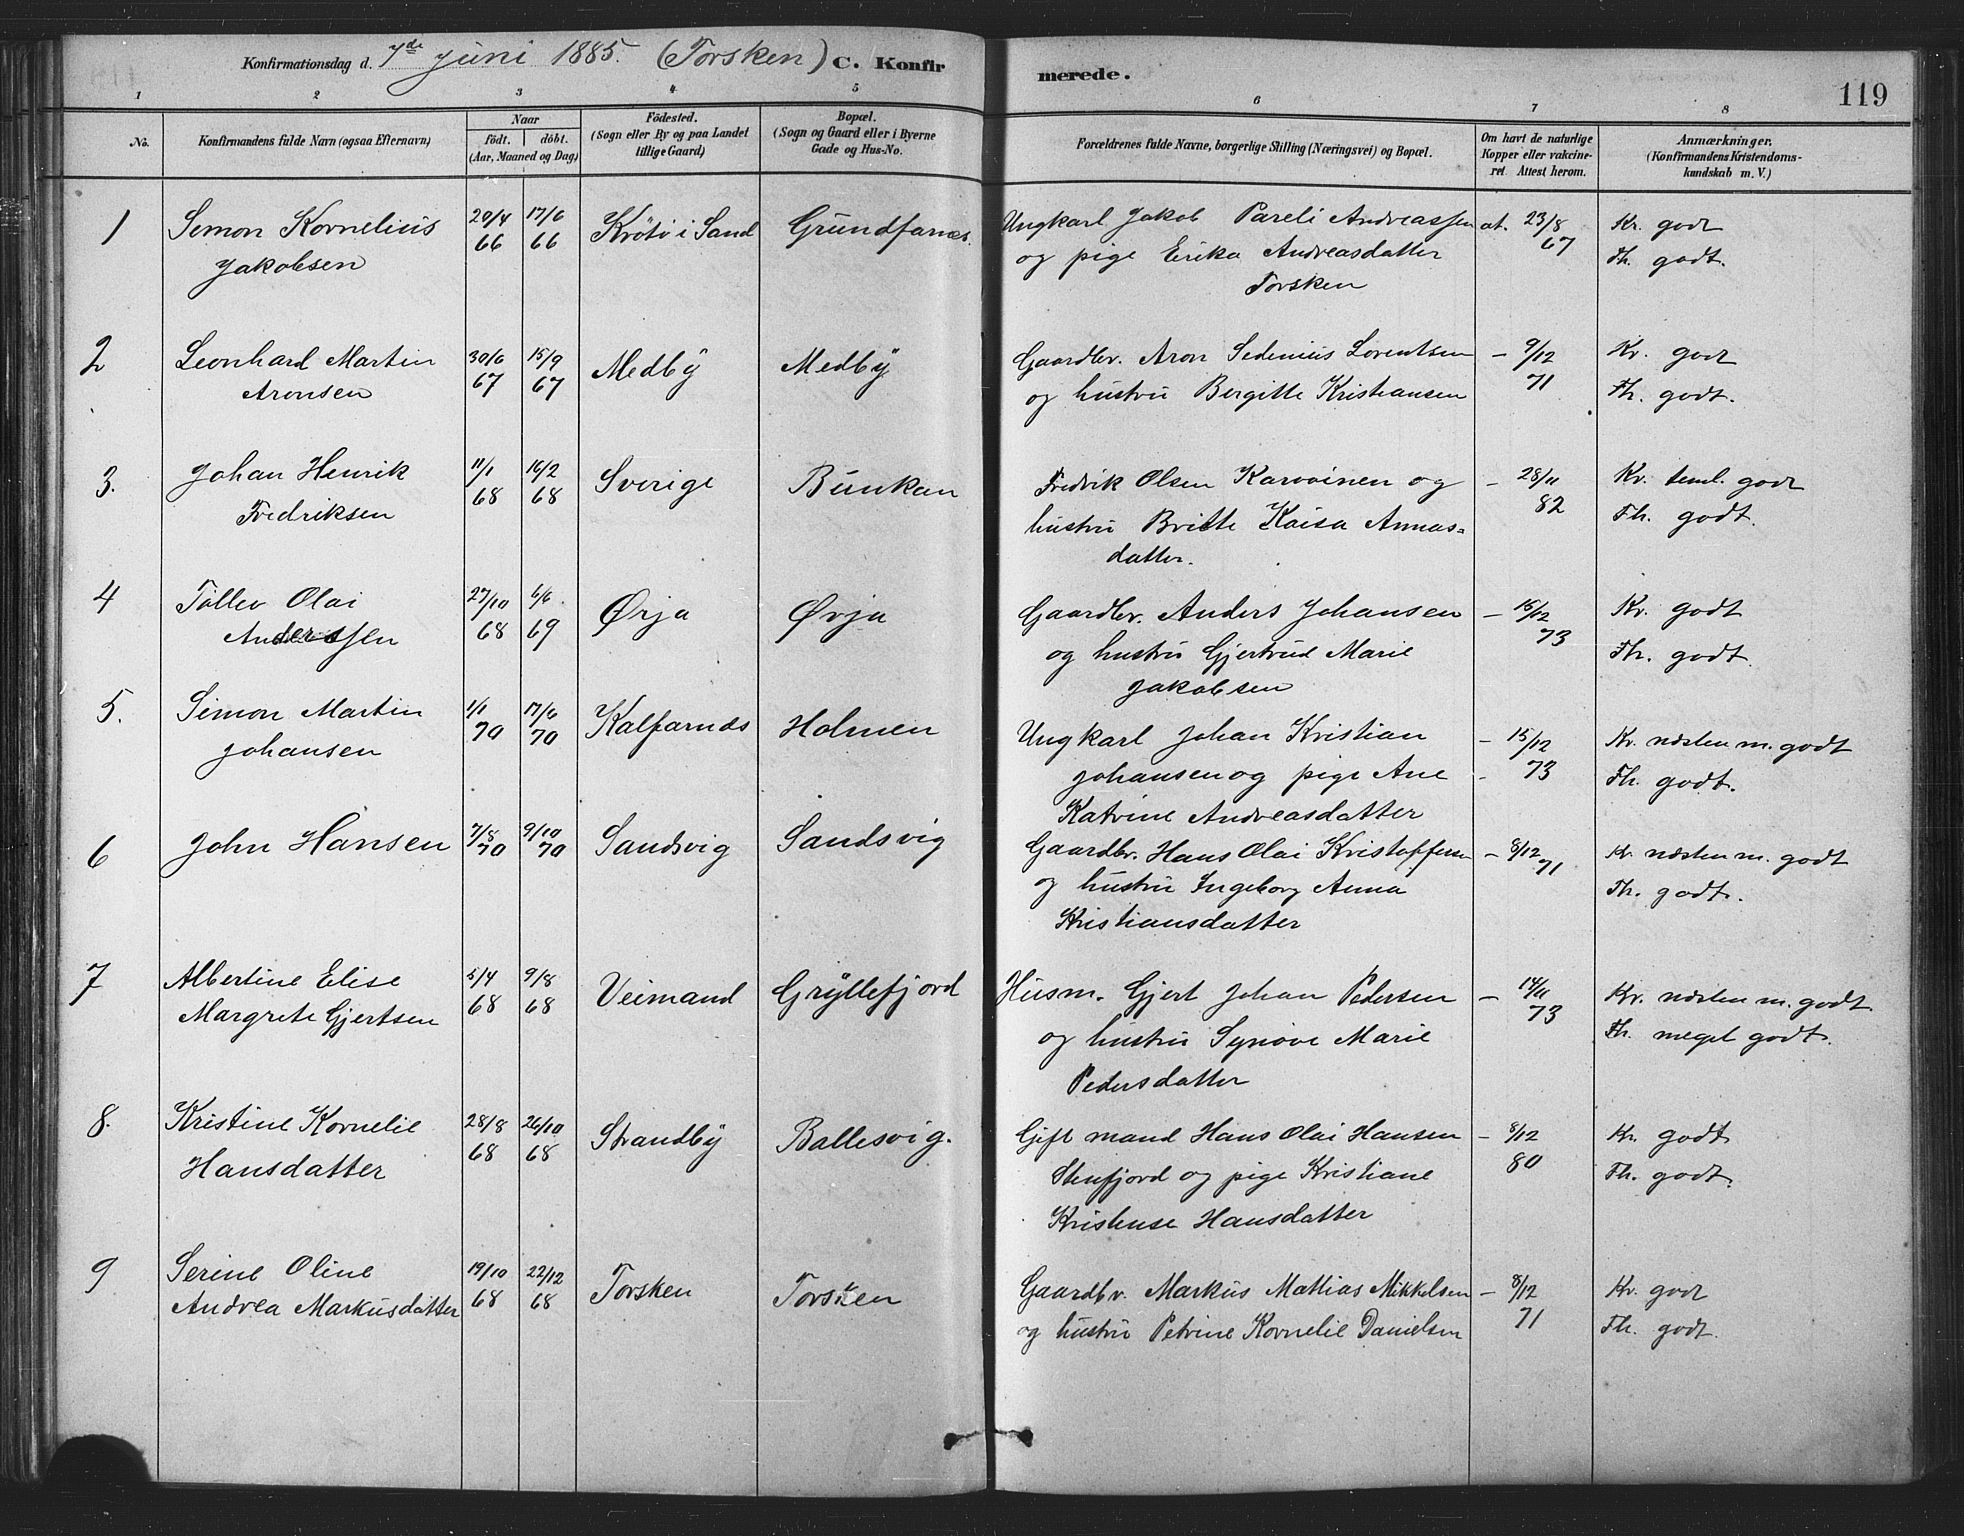 Konfirmationsdag d. 7de Juni 1885. (Torsken) C. Konfir
merede.
119
1 2 3 4 5 6 7 8
No.
Konfirmandens fulde Navn (ogsaa Efternavn)
Naar
födt. döbt.
(Aar, Maaned og Dag)
Födested.
(Sogn eller By og paa Landet
tillige Gaard)
Bopæl.
(Sogn og Gaard eller i Byerne
Gade og Hus-No.
Forældrenes fulde Navne, borgerlige Stilling (Næringsvei) og Bopæl.
Om havt de naturlige
Kopper eller vakcine-
ret Attest herom.
Anmærkninger.
(Konfirmandens Kristendoms-
kundskab m. V.)
1 Simon Kornelius 20/4 17/6 Krötö i Sand Grundfarnes. Ungkarl Jakob Pareli Andreassen at. 23/8 Kr. godt
Jakobsen 66 66 og pige Erika Andreasdatter 67 Fh. godt.
Torsken
2 Leonhard Martin 30/6 15/9 Medby Medby Gaardbr. Aron Sedenius Lorentsen – 9/12 Kr. godt
Aronsen 67 67 og hustru Bergitte Kristiansen 71 Fh. godt.
3. Johan Henrik 11/1 16/2 Sverige Bunkan Fredrik Olsen Karvoinen og – 28/11 Kr. teml. godt
Fredriksen 68 68 hustru Britte Kaisa Annas= 82 Fh. godt.
datter.
4 Tollev Olai 27/10 6/6 Ørja Ørja Gaardbr. Anders Johansen – 15/12 Kr. godt
Anderssen 68 69 og hustru Gjertrud Marie 73 Fh. godt
Jakobsen
5. Simon Martin 1/1 17/6 Kalfarnæs Holmen Ungkarl Johan Kristian – 15/12 Kr. næsten m. godt
Johansen 70 70 Johansen og pige Ane 73 Fh. godt.
Katrine Andreasdatter
6 John Hansen 7/8 9/10 Sandsvig Sandsvig Gaardbr. Hans Olai Kristoffersen – 8/12 Kr næsten m. godt
70 70 og hustru Ingeborg Anna 71 Fh. godt.
Kristiansdatter
7 Albertine Elise 5/4 9/8 Veimand Gryllefjord Husm. Gjert Johan Pedersen – 14/11 Kr. næsten m. godt.
Margrete Gjertsen 68 68 og hustru Synöve Marie 73 Fh. meget godt.
Pedersdatter
8. Kristine Kornelie 28/8 26/10 Strandby Ballesvig. Gift mand Hans Olai Hansen – 8/12 Kr. godt
Hansdatter 68 68 Stenfjord og pige Kristiane 80 Fh. godt.
Kristense Hansdatter
9 Serine Oline 19/10 22/12 Torsken Torsken Gaardbr. Markus Mathias Mikkelsen – 8/12 Kr. godt
Andrea Markusdatter 68 68 og hustru Petrine Kornelie Danielsen 71 Fh. godt.